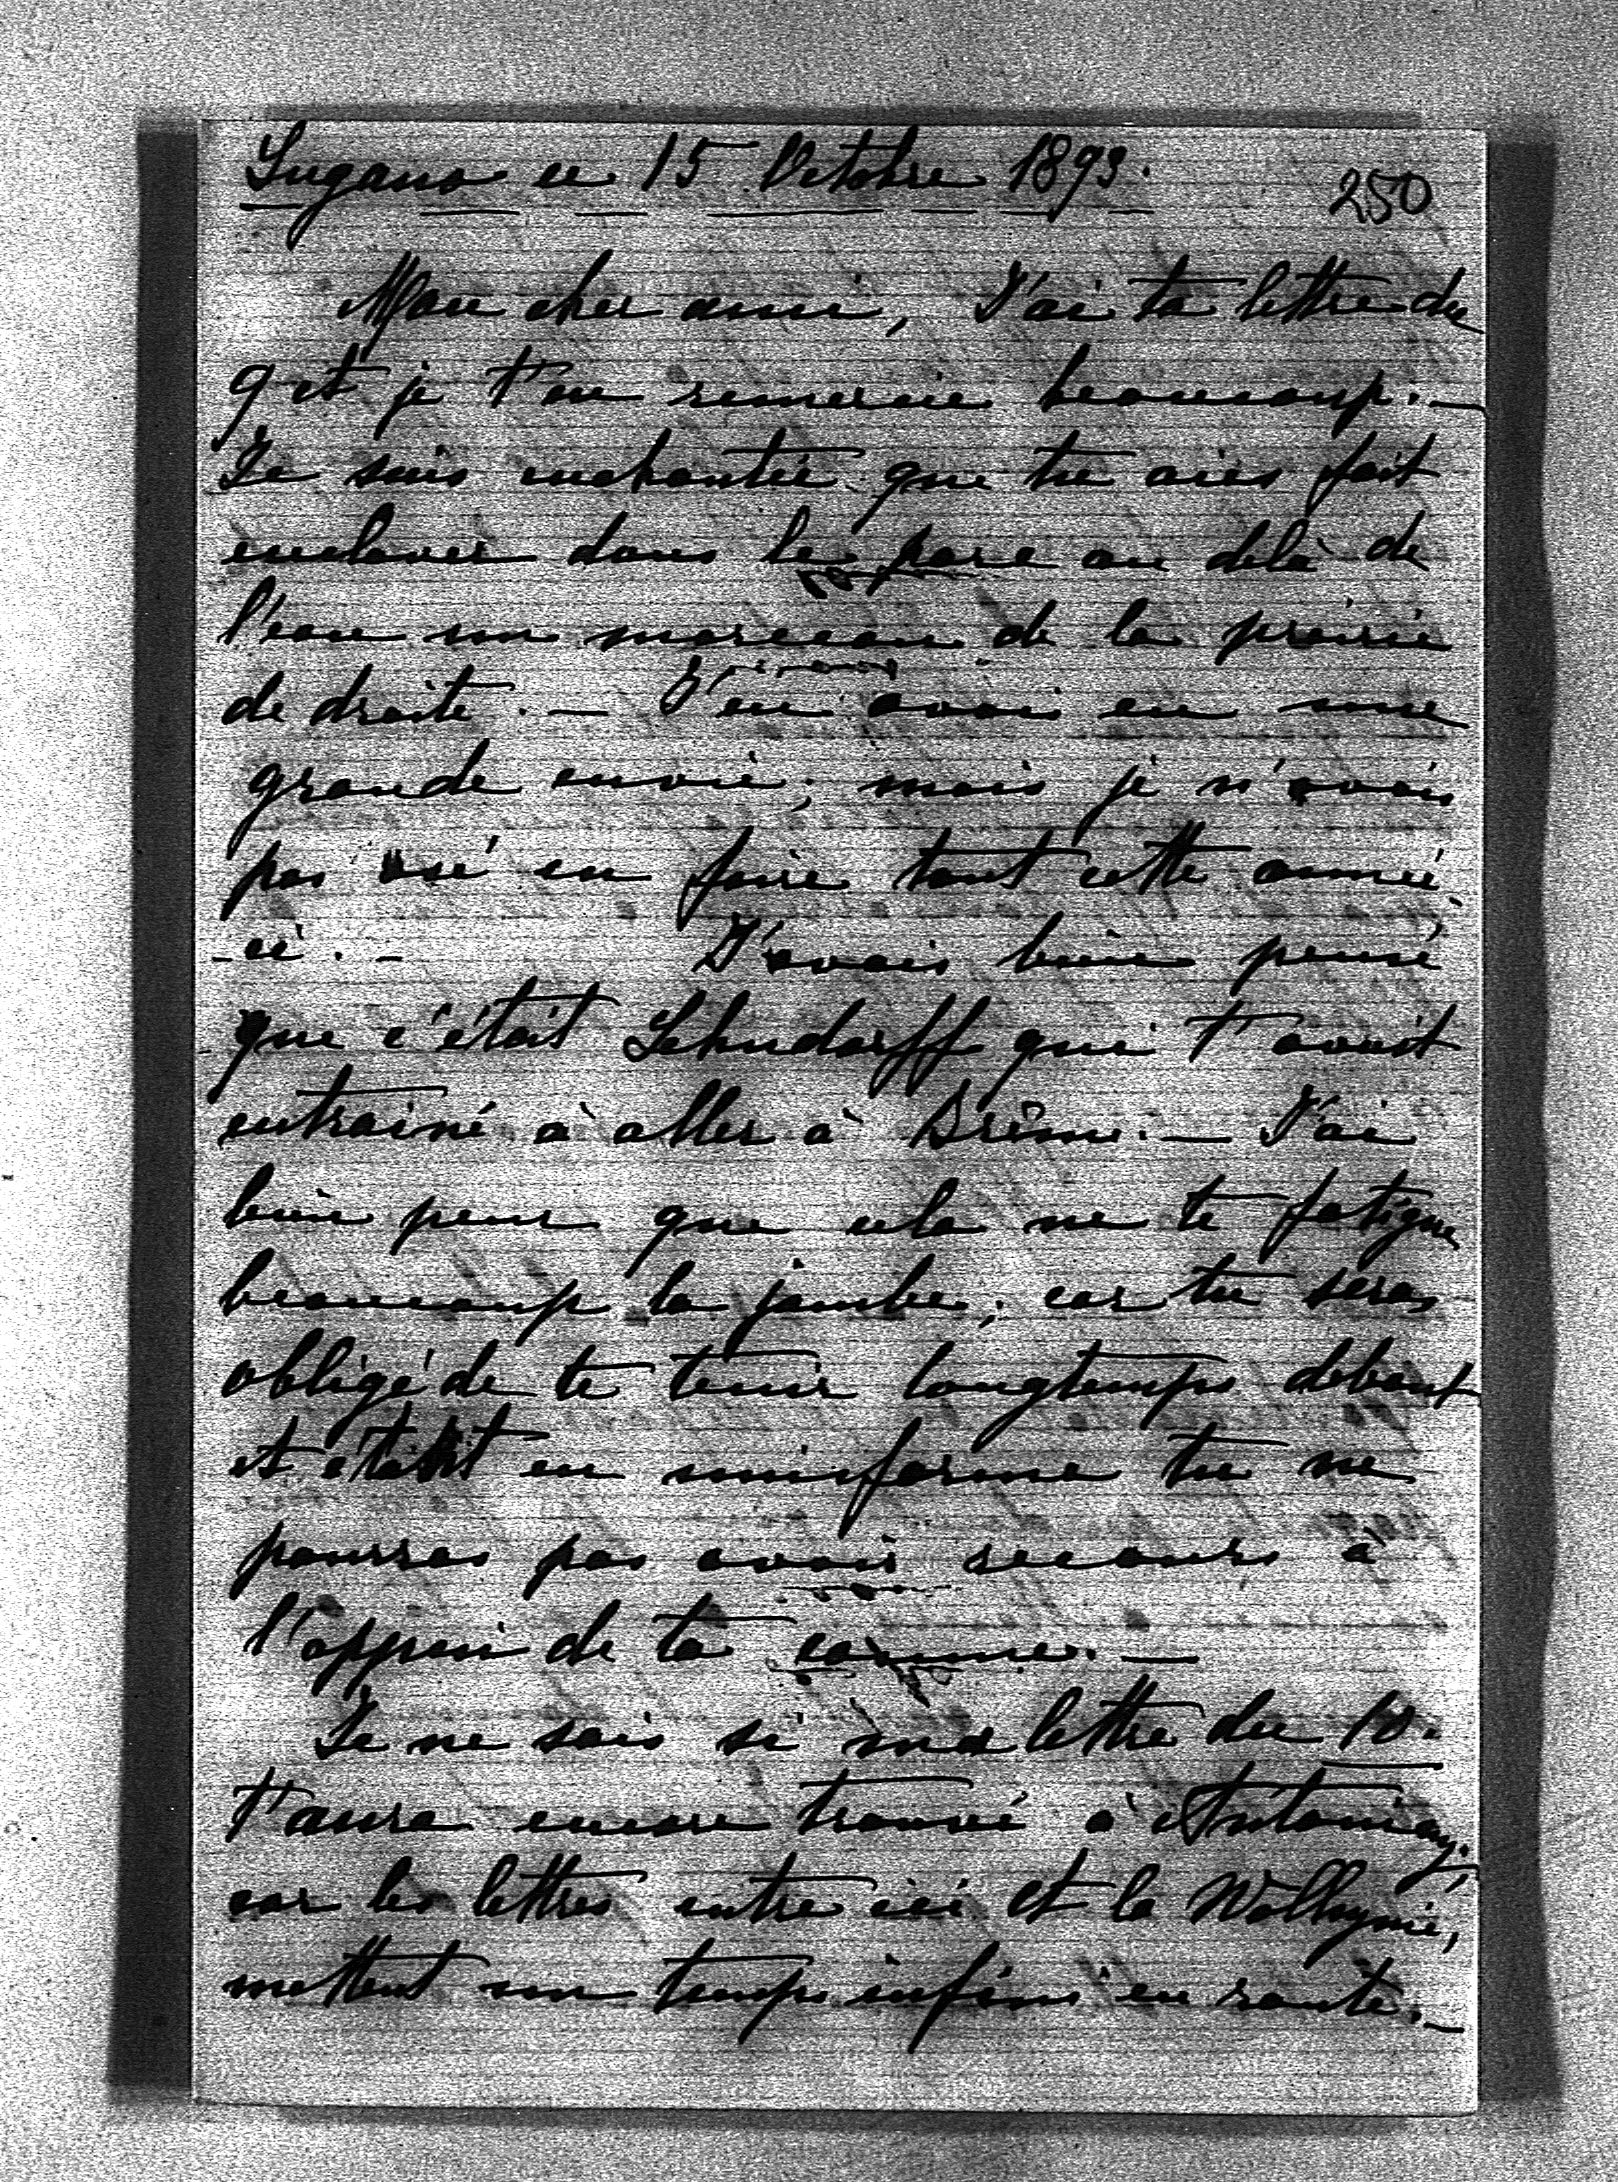 Lugano ce 15 Octobre 1893.
250
Mon cher ami, J'ai ta lettre du
9 et je t'en remercie beaucoup. —
Je suis enchantée que tu aies fait
enclaver dans le parc au delà de
l'eau un morceau de la prairie
de droite. — J'en avais eu une
grande envie; mais je n'avais
pas osé en faire tant cette année
-ci. - J'avais bien pensé
que c'était Lehndorff qui t'avait
entrainé à aller à Brême. — J'ai
bien peur que cela ne te fatigue
beaucoup la jambe; car tu seras
obligé de te tenir longtemps debout
et étant en uniforme tu ne
pourras pas avoir recours à
l'appui de ta canne. —
Je ne sais si ma lettre du 10.
t'aura encore trouvé à Antoniny;
car les lettres entre ici et la Wolhynie,
mettent un temps infini en route. —